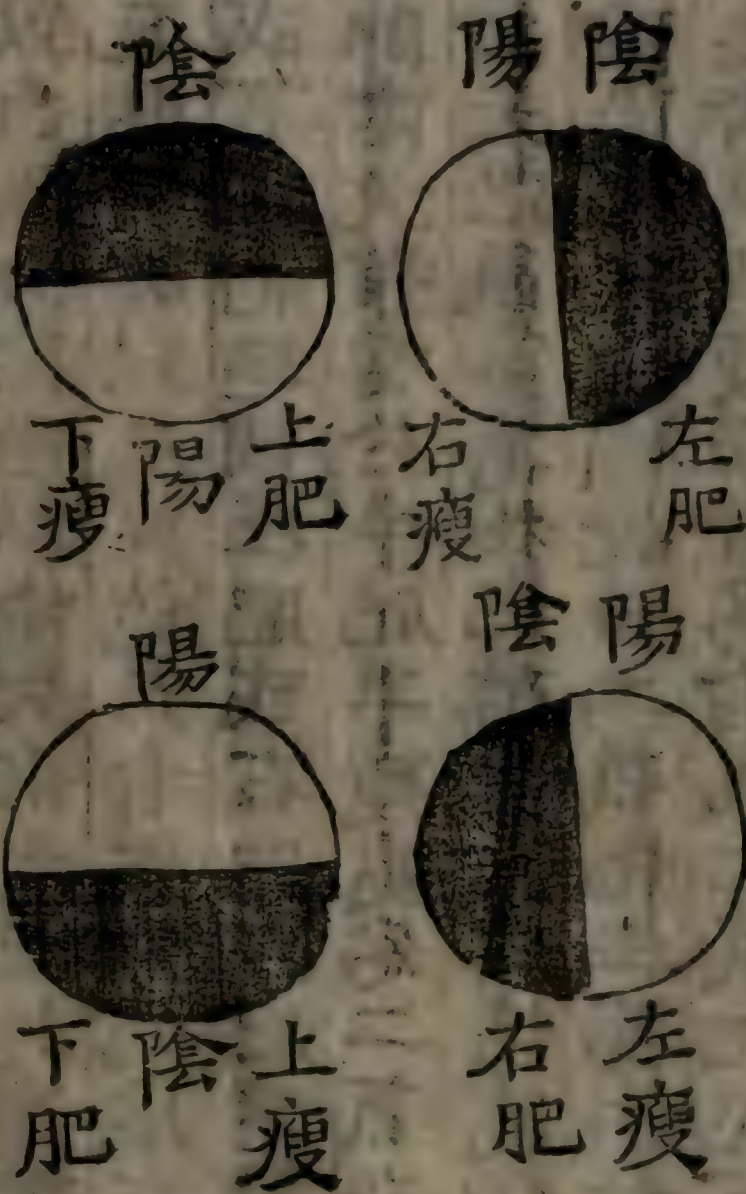 陰
陽
左肥
右瘦
陰
上肥
陽
下瘦
陽
陰
左瘦
右肥
陽
上瘦
陰
下肥